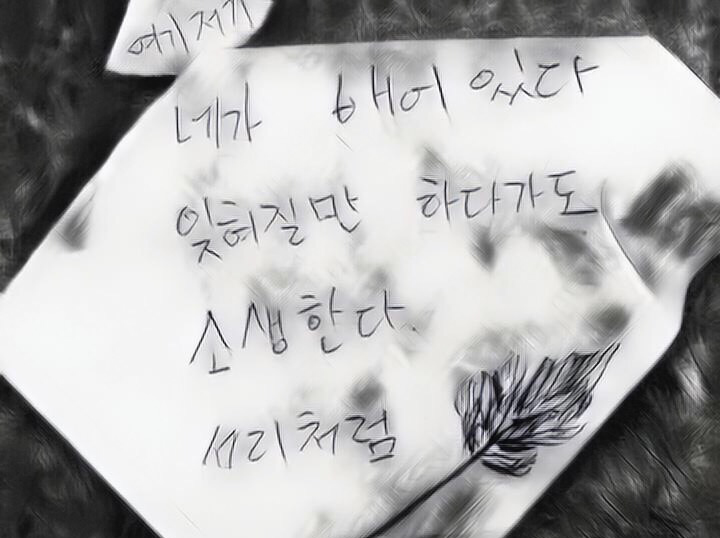 여기저기
네가 배어 있다
잊혀질만 하다가도
소생한다.
서리처럼